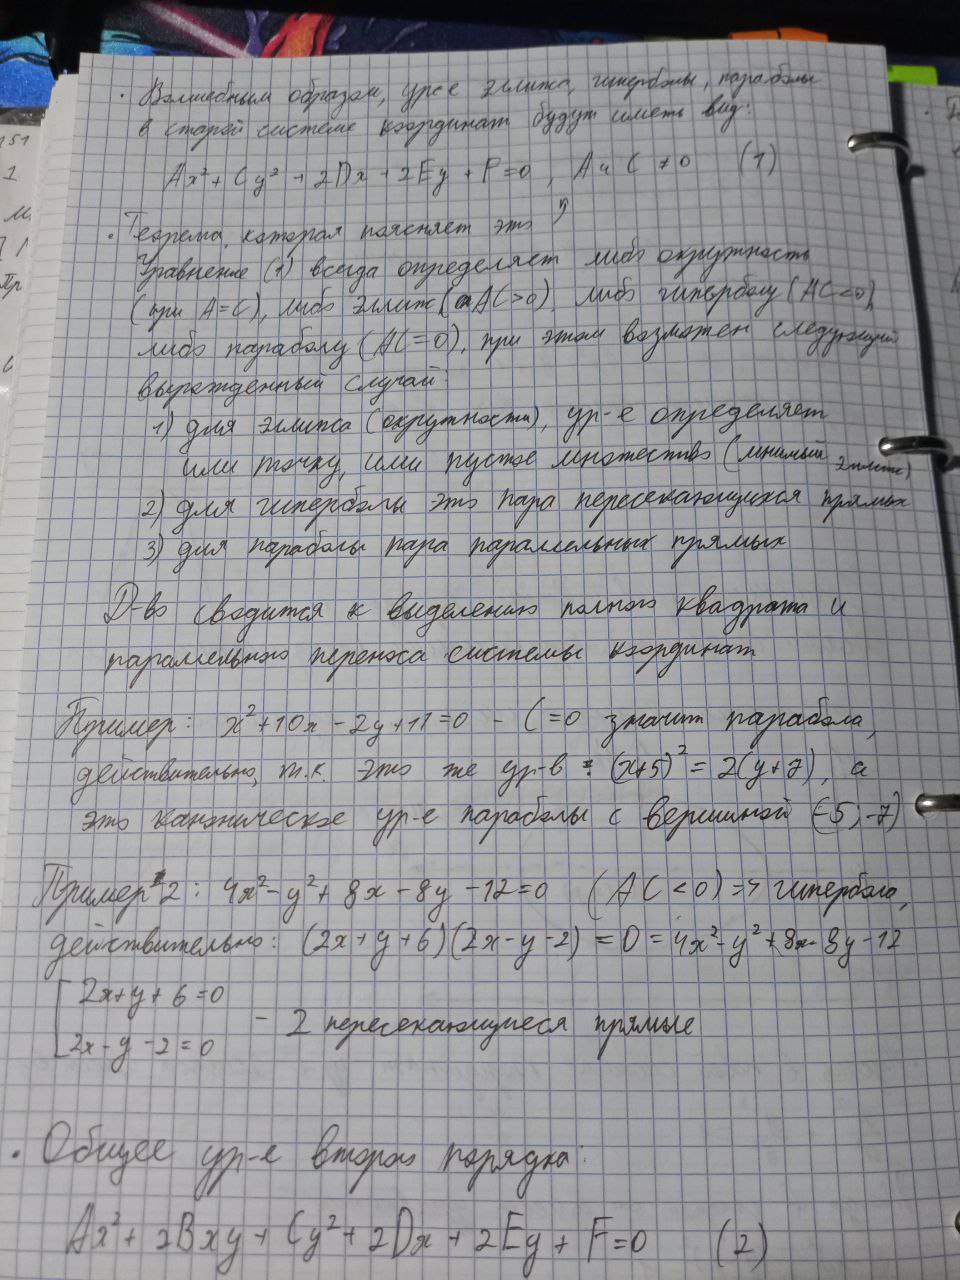 · Волшебным образом, ур-е эллипса, гиперболы, параболы
в старой системе координат будут иметь вид:
Ax² + Cy² + 2Dx + 2Ey + F = 0, A и C ≠ 0 (1)
· Теорема, которая поясняет это
Уравнение (1) всегда определяет либо окружность
(при A=C), либо эллипс (AC>0), либо гиперболу (AC<0),
либо параболу (AC=0), при этом возможен следующий
вырожденный случай:
1) для эллипса (окружности), ур-е определяет
или точку, или пустое множество (мнимый эллипс)
2) для гиперболы это пара пересекающихся прямых
3) для параболы пара параллельных прямых
Д-во сводится к выделению полного квадрата и
параллельного переноса системы координат
Пример: x² + 10x - 2y + 11 = 0 - C = 0 значит парабола,
действительно, т.к. это же ур-в : (x+5)² = 2(y+7), а
это каноническое ур-е параболы с вершиной (-5; -7)
Пример 2: 4x² - y² + 8x - 8y - 12 = 0 (AC < 0) => гипербола,
действительно: (2x + y + 6)(2x - y - 2) = 0 = 4x² - y² + 8x - 8y - 12
2x + y + 6 = 0
2x - y - 2 = 0
- 2 пересекающиеся прямые
· Общее ур-е второго порядка:
Ax² + 2Bxy + Cy² + 2Dx + 2Ey + F = 0 (2)